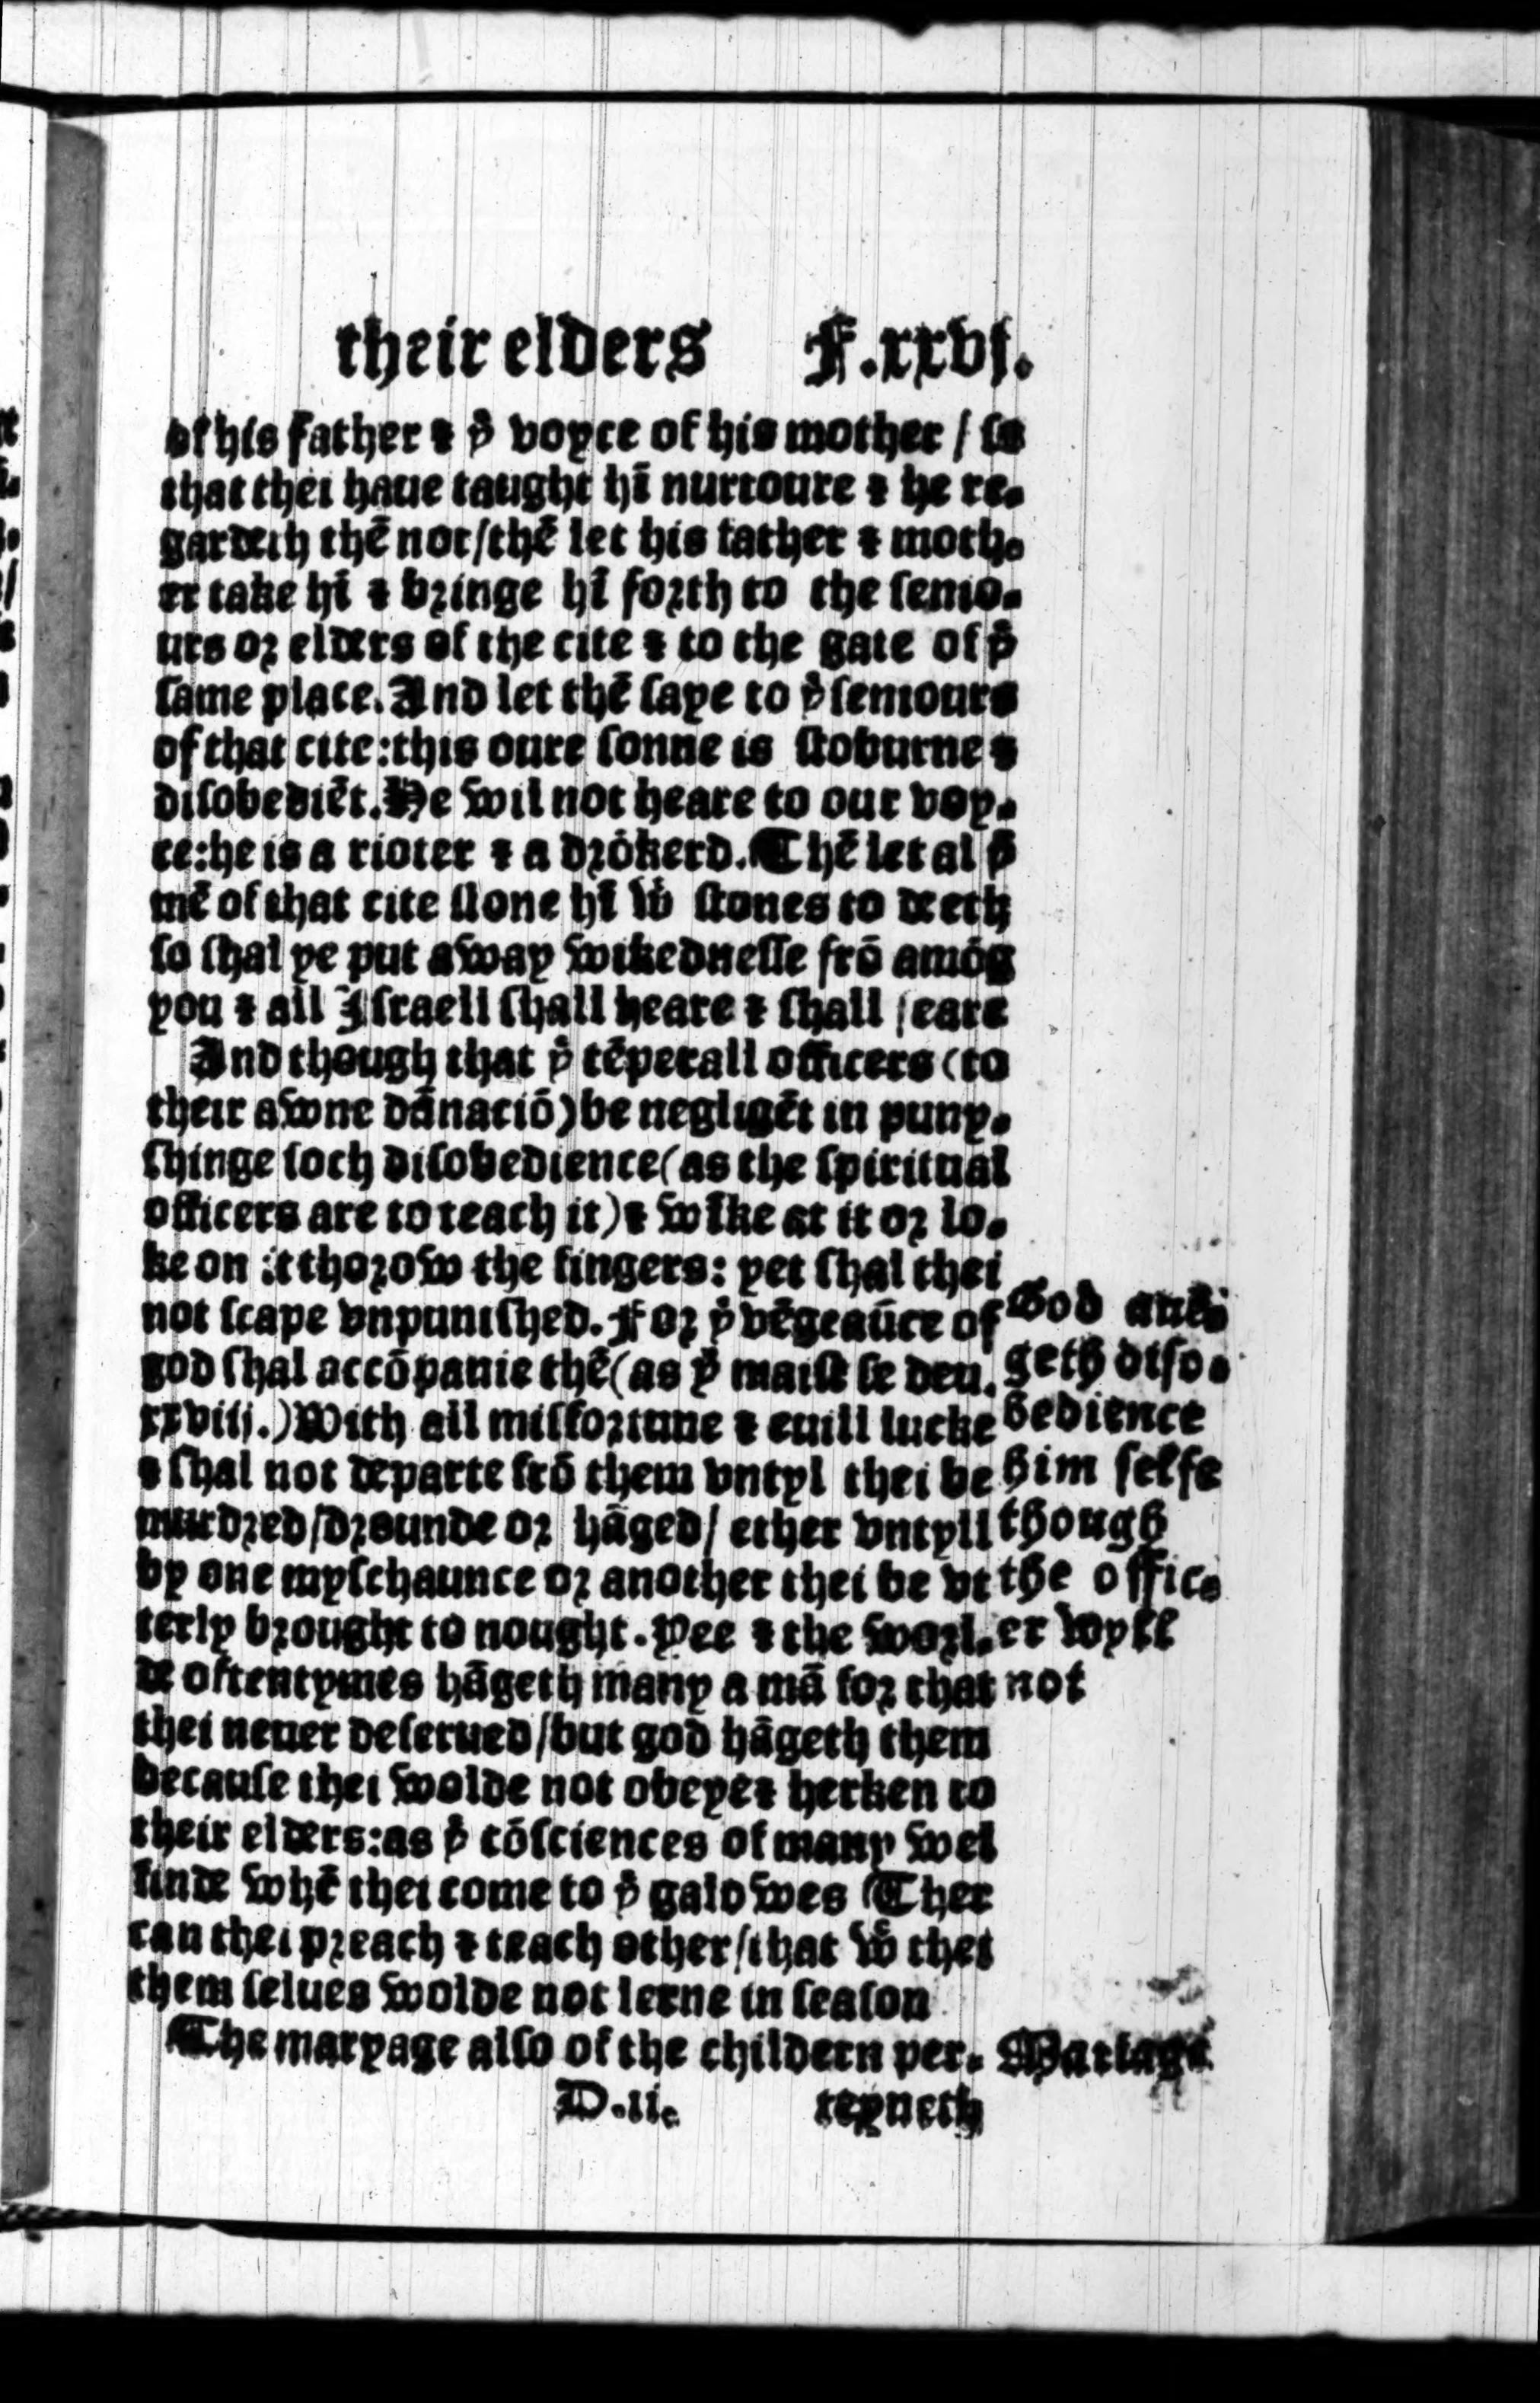 their elders F.xxvj.
of his father & þͤ voyce of his mother / so
that thei haue taught hī nurtoure & he re-
gardeth thē not/thē let his father & moth-
er take hī & bringe hī forth to the senio-
urs or elders of the cite & to the gate of þͤ
same place. And let thē saye to þͤ seniours
of that cite:this oure sonne is stoburne &
disobediēt. He wil not heare to our voy-
ce:he is a rioter & a drōkerd. Thē let al þͤ
mē of that cite stone hī wͭ stones to deeth
so shal ye put away wikednesse frō amōg
you & all Israell shall heare & shall feare
And though that þͤ tēperall officers (to
their awne dānaciō) be negligēt in puny-
shinge soch disobedience (as the spiritual
officers are to teach it) & wīke at it or lo-
ke on it thorow the fingers: yet shal thei
not scape vnpunished. For þͤ vēgeaūce of
god shal accōpanie thē (as þͧ maist se deu.
xxviij.) With all misfortune & euill lucke
& shal not departe frō them vntyl thei be
murdred/drounde or hāged/ ether vntyll
by one myschaunce or another thei be vt
terly brought to nought. Yee & the worl-
de oftentymes hāgeth many a mā for that
thei neuer deserued/but god hāgeth them
because thei wolde not obeye & herken to
their elders:as þͤ cōsciences of many wel
finde whē thei come to þͤ galowes Ther
can thei preach & teach other/that wͨ thei
them selues wolde not lerne in season
The maryage also of the childern per-
D.ii. teyneth
God auē-
geth diso-
bedience
him selfe
though
the offic-
er wyll
not
Mariage